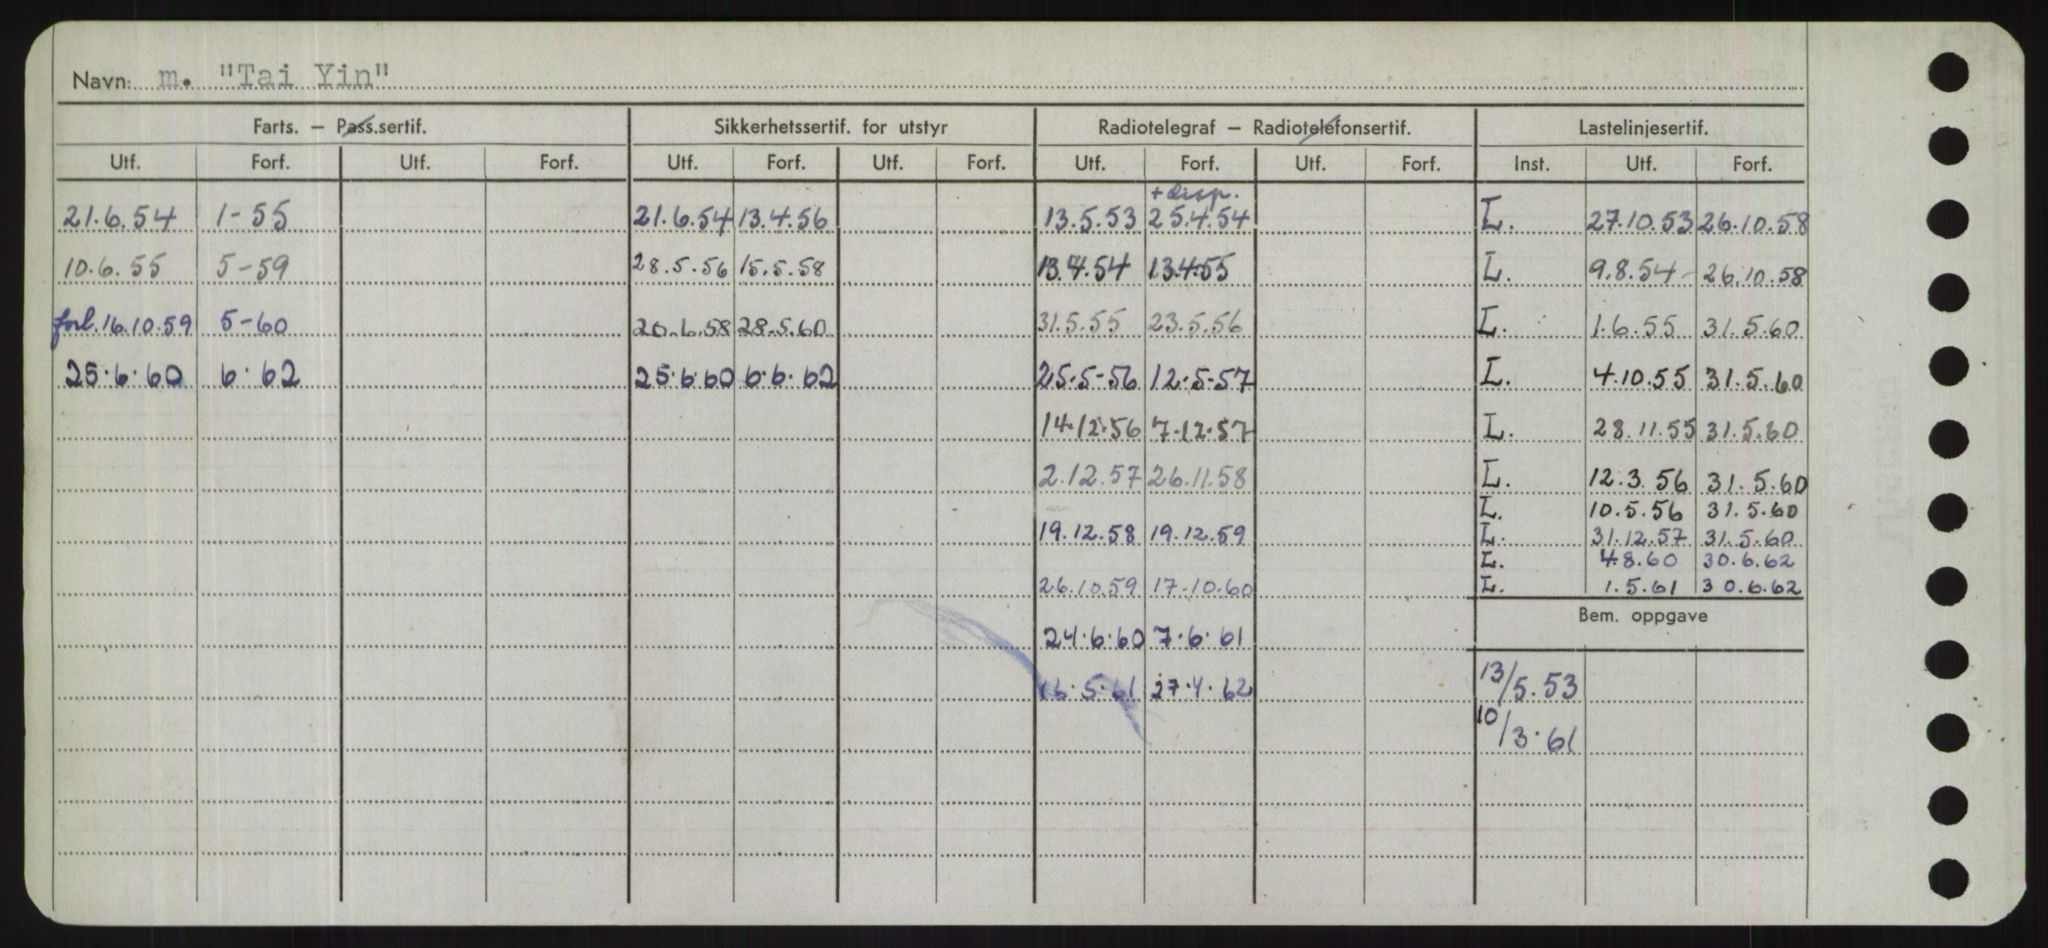 Navn: m. "Tai Yin"
Farts. – Pass.sertif. Sikkerhetssertif. for utstyr Radiotelegraf – Radiotelefonsertif. Lastelinjesertif.
Utf. Forf. Utf. Forf. Utf. Forf. Utf. Forf. Utf. Forf. Utf. Forf. Inst. Utf. Forf.
+ disp.
21.6.54 1-55 21.6.54 13.4.56 13.5.53 25.4.54 L. 27.10.53 26.10.58
10.6.55 5-59 28.5.56 15.5.58 13.4.54 13.4.55 L. 9.8.54- 26.10.58
forl. 16.10.59 5-60 20.6.58 28.5.60 31.5.55 23.5.56 L. 1.6.55 31.5.60
25.6.60 6.62 25.6.60 6.6.62 25.5-56 12.5-57 L. 4.10.55 31.5.60
14.12.56 7.12.57 L. 28.11.55 31.5.60
2.12.57 26.11.58 L. 12.3.56 31.5.60
L. 10.5.56 31.5.60
19.12.58 19.12.59 L. 31.12.57 31.5.60
L. 4.8.60 30.6.62
26.10.59 17.10.60 L. 1.5.61 30.6.62
Bem. oppgave
24.6.60 7.6.61
16.5.61 27.4.62 13/5.53
10/3.61